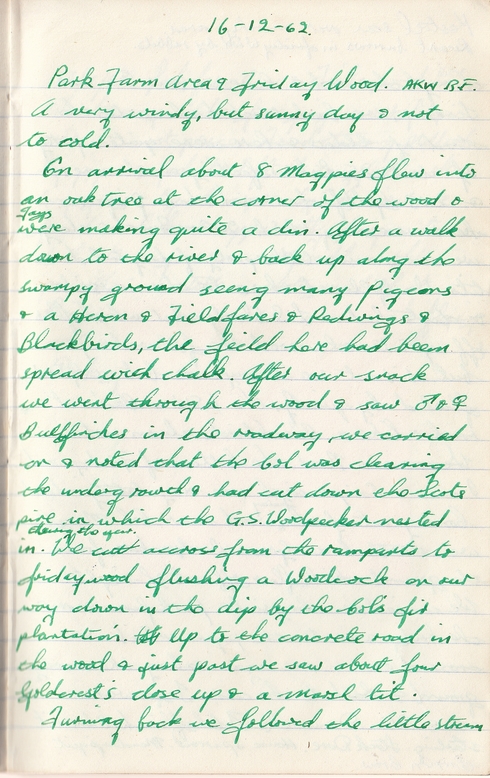 16-12-62
Park Farm Area & Friday Wood. AKW B.F.
A very windy, but sunny day & not
to cold.
On arrival about 8 Magpies flew into
an oak tree at the corner of the wood &
were making quite a din. After a walk
down to the river & back up along the
swampy ground seeing many Pigeons
& a Heron & Fieldfares & Redwings &
Blackbirds, the field here had been
spread with chalk. After our snack
we went through the wood & saw ♂ & ♀
Bullfinches in the roadway, we carried
on & noted that the bol was clearing
the undergrowth & had cut down the Scots
pine in which the G.S. Woodpecker nested
during the year.
in. We cut accross from the ramparts to
fridaywood flushing a Woodcock on our
way down in the dip by the bol's fir
plantation. Up to the concrete road in
the wood & just past we saw about four
Goldcrest's close up & a marsh tit.
Turning back we followed the little stream